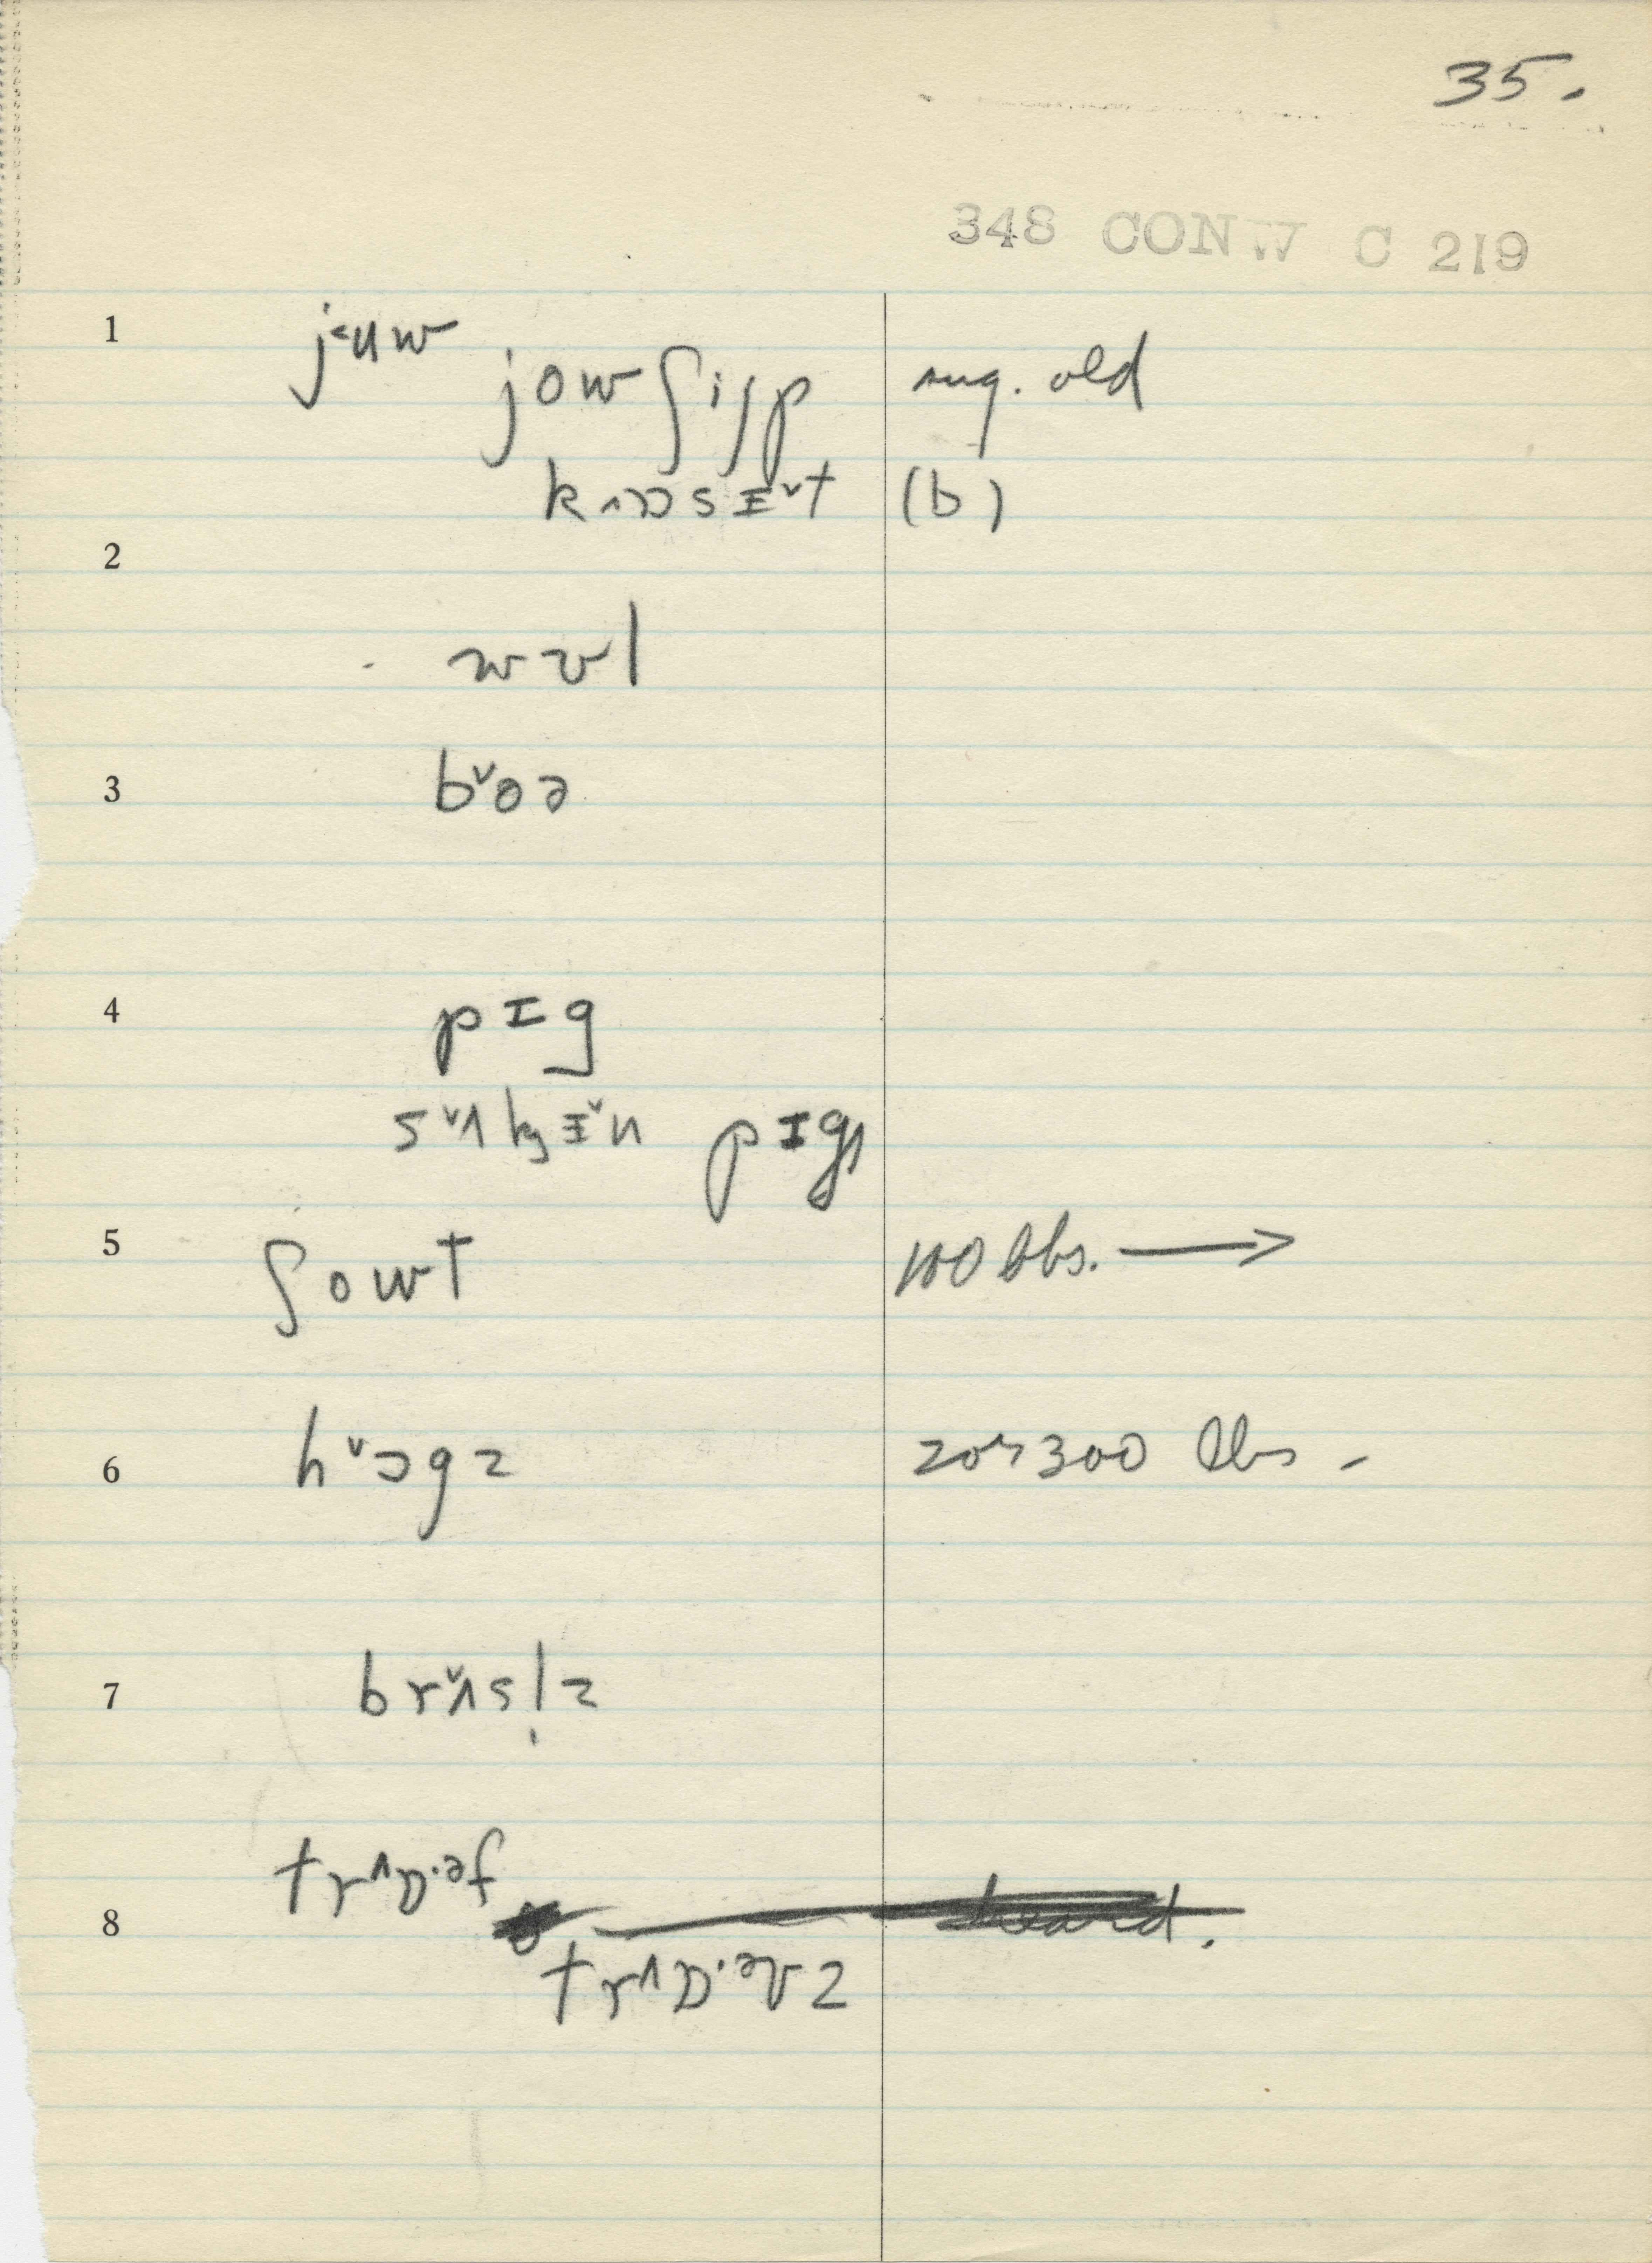 35.
348 CONW C 219
1 j˂ʉw
jowʃijp sug. old
kʌɒsɪ˅t (b)
2
wʊl
3 b˅oə
4 pɪg
s˅ʌkɪ˅n pɪgs
5 ʃowt 100 lbs. →
6 h˅ɔgz 200-300 lbs -
7 br˅ʌsl̩z
trʌɒ·əf
8
trʌɒ·əvz